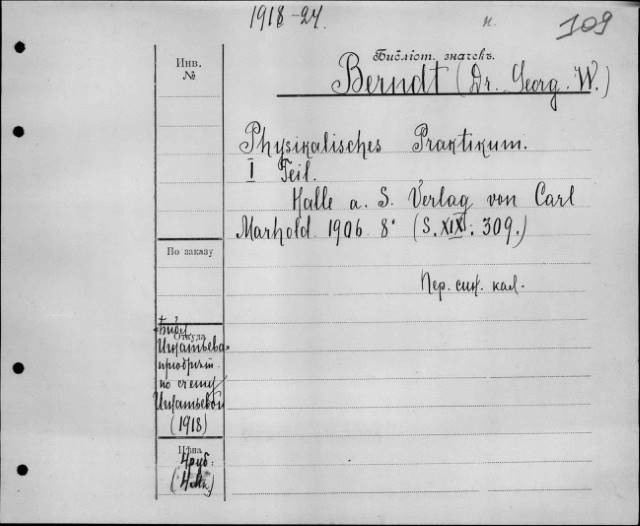 1918-24.
н.
109
Библіот. значекъ.
Инв.
№
Berndt (Dr. Georg. W.)
Physikalisches Praktikum.
I Teil.
Halle a. S. Verlag von Carl
Marhold 1906 8° (S. XIX. 309.)
По заказу
Пер. син. кал.
Откуда
Игнатьева
пріобрѣт
по счету
Игнатьевой
(1918)
Цѣна
4 руб.
(4 Mk.)